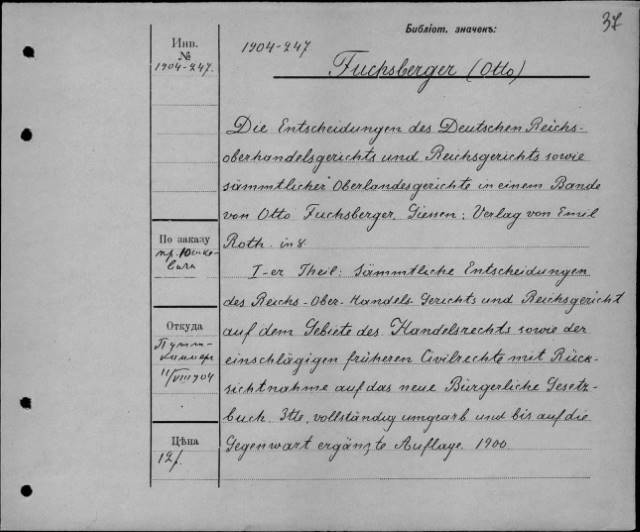 37
Библіот. значекъ:
Инв.
№
1904-247.
1904-247
Fuchsberger (Otto)
Die Entscheidungen des Deutschen Reichs-
oberhandelsgerichts und Reichsgerichts sowie
sämmtlicher Oberlandesgerichte in einem Bande
von Otto Fuchsberger. Giessen: Verlag von Emil
Roth. in 8.
По заказу
пр. Юшке-
вича
I-er Theil: Sämmtliche Entscheidungen
des Reichs-Ober-Handels-Gerichts und Reichsgericht
Откуда
auf dem Gebiete des Handelsrechts sowie der
einschlägigen früheren Civilrechte mit Rück-
sichtnahme auf das neue Bürgerliche Gesetz-
11/VIII 904
buch. 3tte, vollständig umgearb und bis auf die
Gegenwart ergänzte Auflage. 1900.
Цѣна